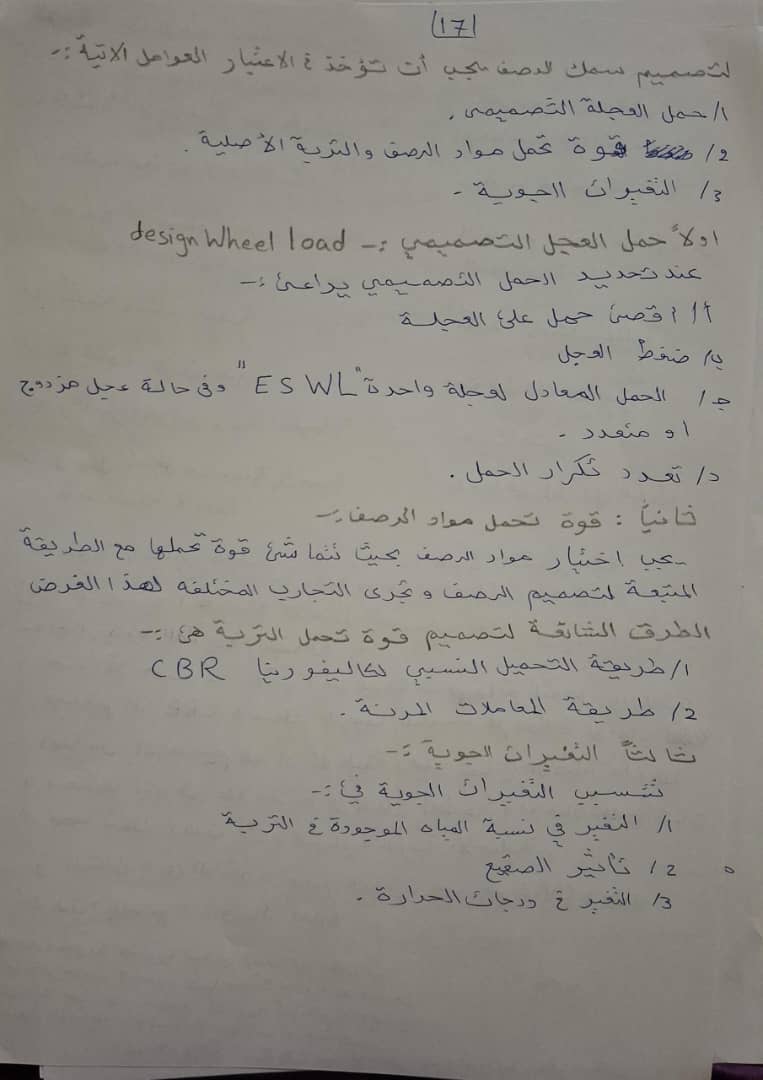 (17)
لتصميم سمك الرصف يجب أن تؤخذ في الاعتبار العوامل الآتية :-
1/ حمل العجلة التصميمي .
2/ قوة تحمل مواد الرصف والتربة الأصلية .
3/ التغيرات الجوية -
اولاً حمل العجل التصميمي :- design Wheel load
عند تحديد الحمل التصميمي يراعى :-
أ/ اقصى حمل على العجلة
ب/ ضغط العجل
ج/ الحمل المعادل لعجلة واحدة "ESWL" وفى حالة عجل مزدوج
او متعدد -
د/ تعدد تكرار الحمل .
ثانياً : قوة تحمل مواد الرصف :-
يجب اختيار مواد الرصف بحيث تتماشى قوة تحملها مع الطريقة
المتبعة لتصميم الرصف وتجرى التجارب المختلفه لهذا الغرض
الطرق الشائعة لتصميم قوة تحمل التربة هى :-
1/ طريقة التحميل النسبي لكاليفورنيا CBR
2/ طريقة المعاملات المرنة .
ثالثاً التغيرات الجوية :-
تتسبب التغيرات الجوية في :-
1/ التغير في نسبة المياه الموجودة في التربة
2/ تأثير الصقيع
3/ التغير في درجات الحرارة .